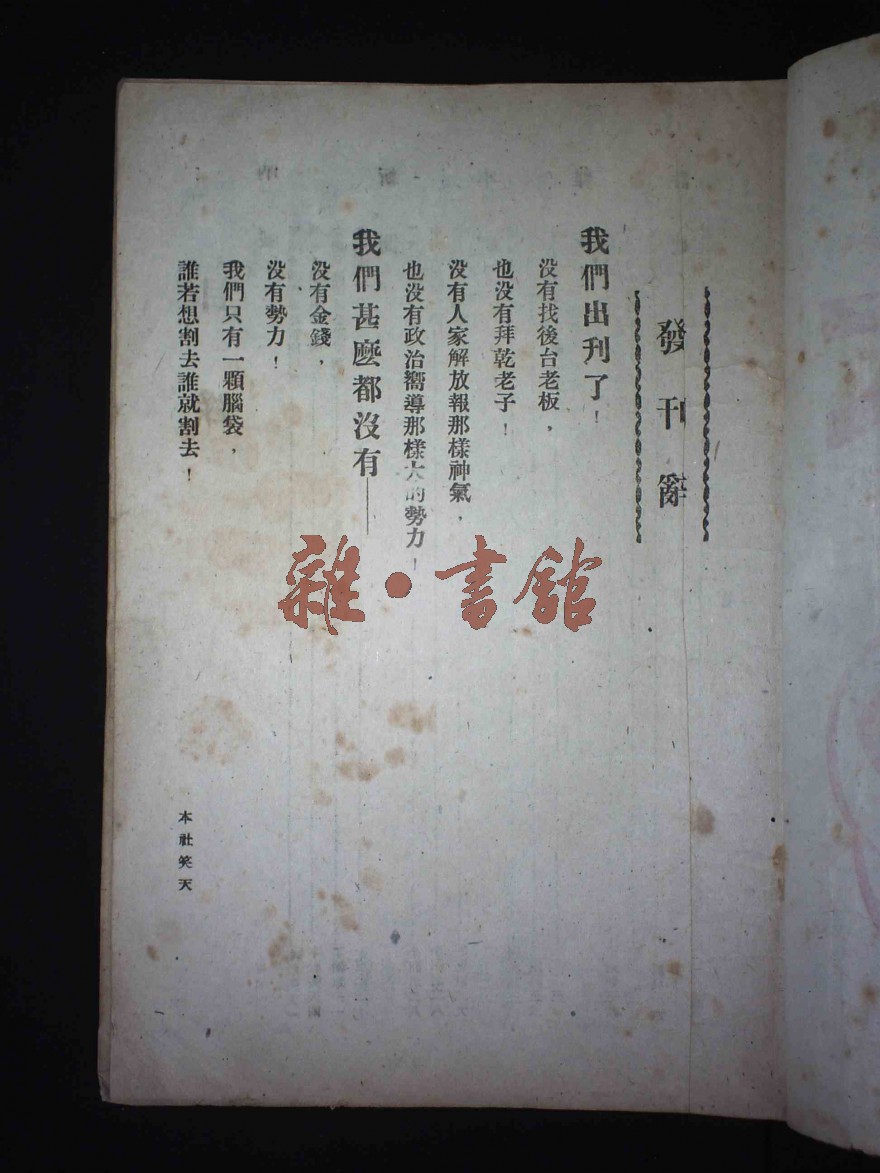 發刊辭
我們出刊了！
没有找後台老板，
也没有拜乾老子！
没有人家解放報那樣神氣，
也没有政治嚮導那樣大的勢力！
我們甚麽都沒有——
没有金錢，
没有勢力！
我們只有一顆腦袋，
誰若想割去誰就割去！
本社笑天
雜·書館